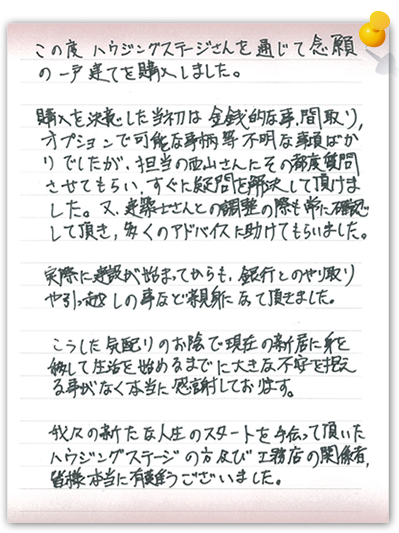 この度 ハウジングステージさんを通じて念願
の一戸建てを購入しました。
購入を決意した当初は金銭的な事,間取り,
オプションで可能な事柄等不明な事項ばか
りでしたが、担当の西山さんにその都度質問
させてもらい,すぐに疑問を解決して頂けま
した。又、建築士さんとの調整の際も常に確認
して頂き,多くのアドバイスに助けてもらいました。
実際に建設が始まってからも、銀行とのやり取り
や引っ越しの事など親身になって頂きました。
こうした気配りのお陰で現在の新居に身を
移して生活を始めるまでに大きな不安を抱え
る事がなく本当に感謝しております。
我々の新たな人生のスタートを手伝って頂いた
ハウジングステージの方及び工務店の関係者,
皆様本当に有難うございました。